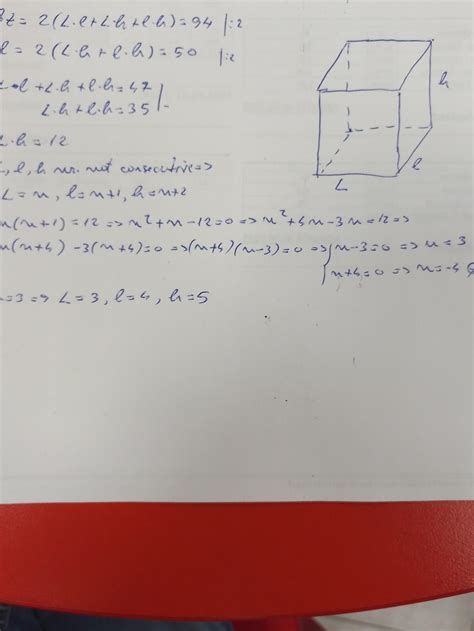 z = 2(L·l+L·h+l·h)=94 |:2
l = 2(L·h+l·h)=50 |:2
l +L·h+l·h=47
L·h+l·h=35 | -
L·h=12
L, l, h nr. nat consecutive=>
L=n, l=n+1, h=n+2
n(n+1)=12 => n²+n-12=0 => n²+4n-3n=12 =>
n(n+4) -3(n+4)=0 =>(n+4)(n-3)=0 => n-3=0 => n=3
n+4=0 => n=-4
=3 => L=3, l=4, h=5
h
l
L